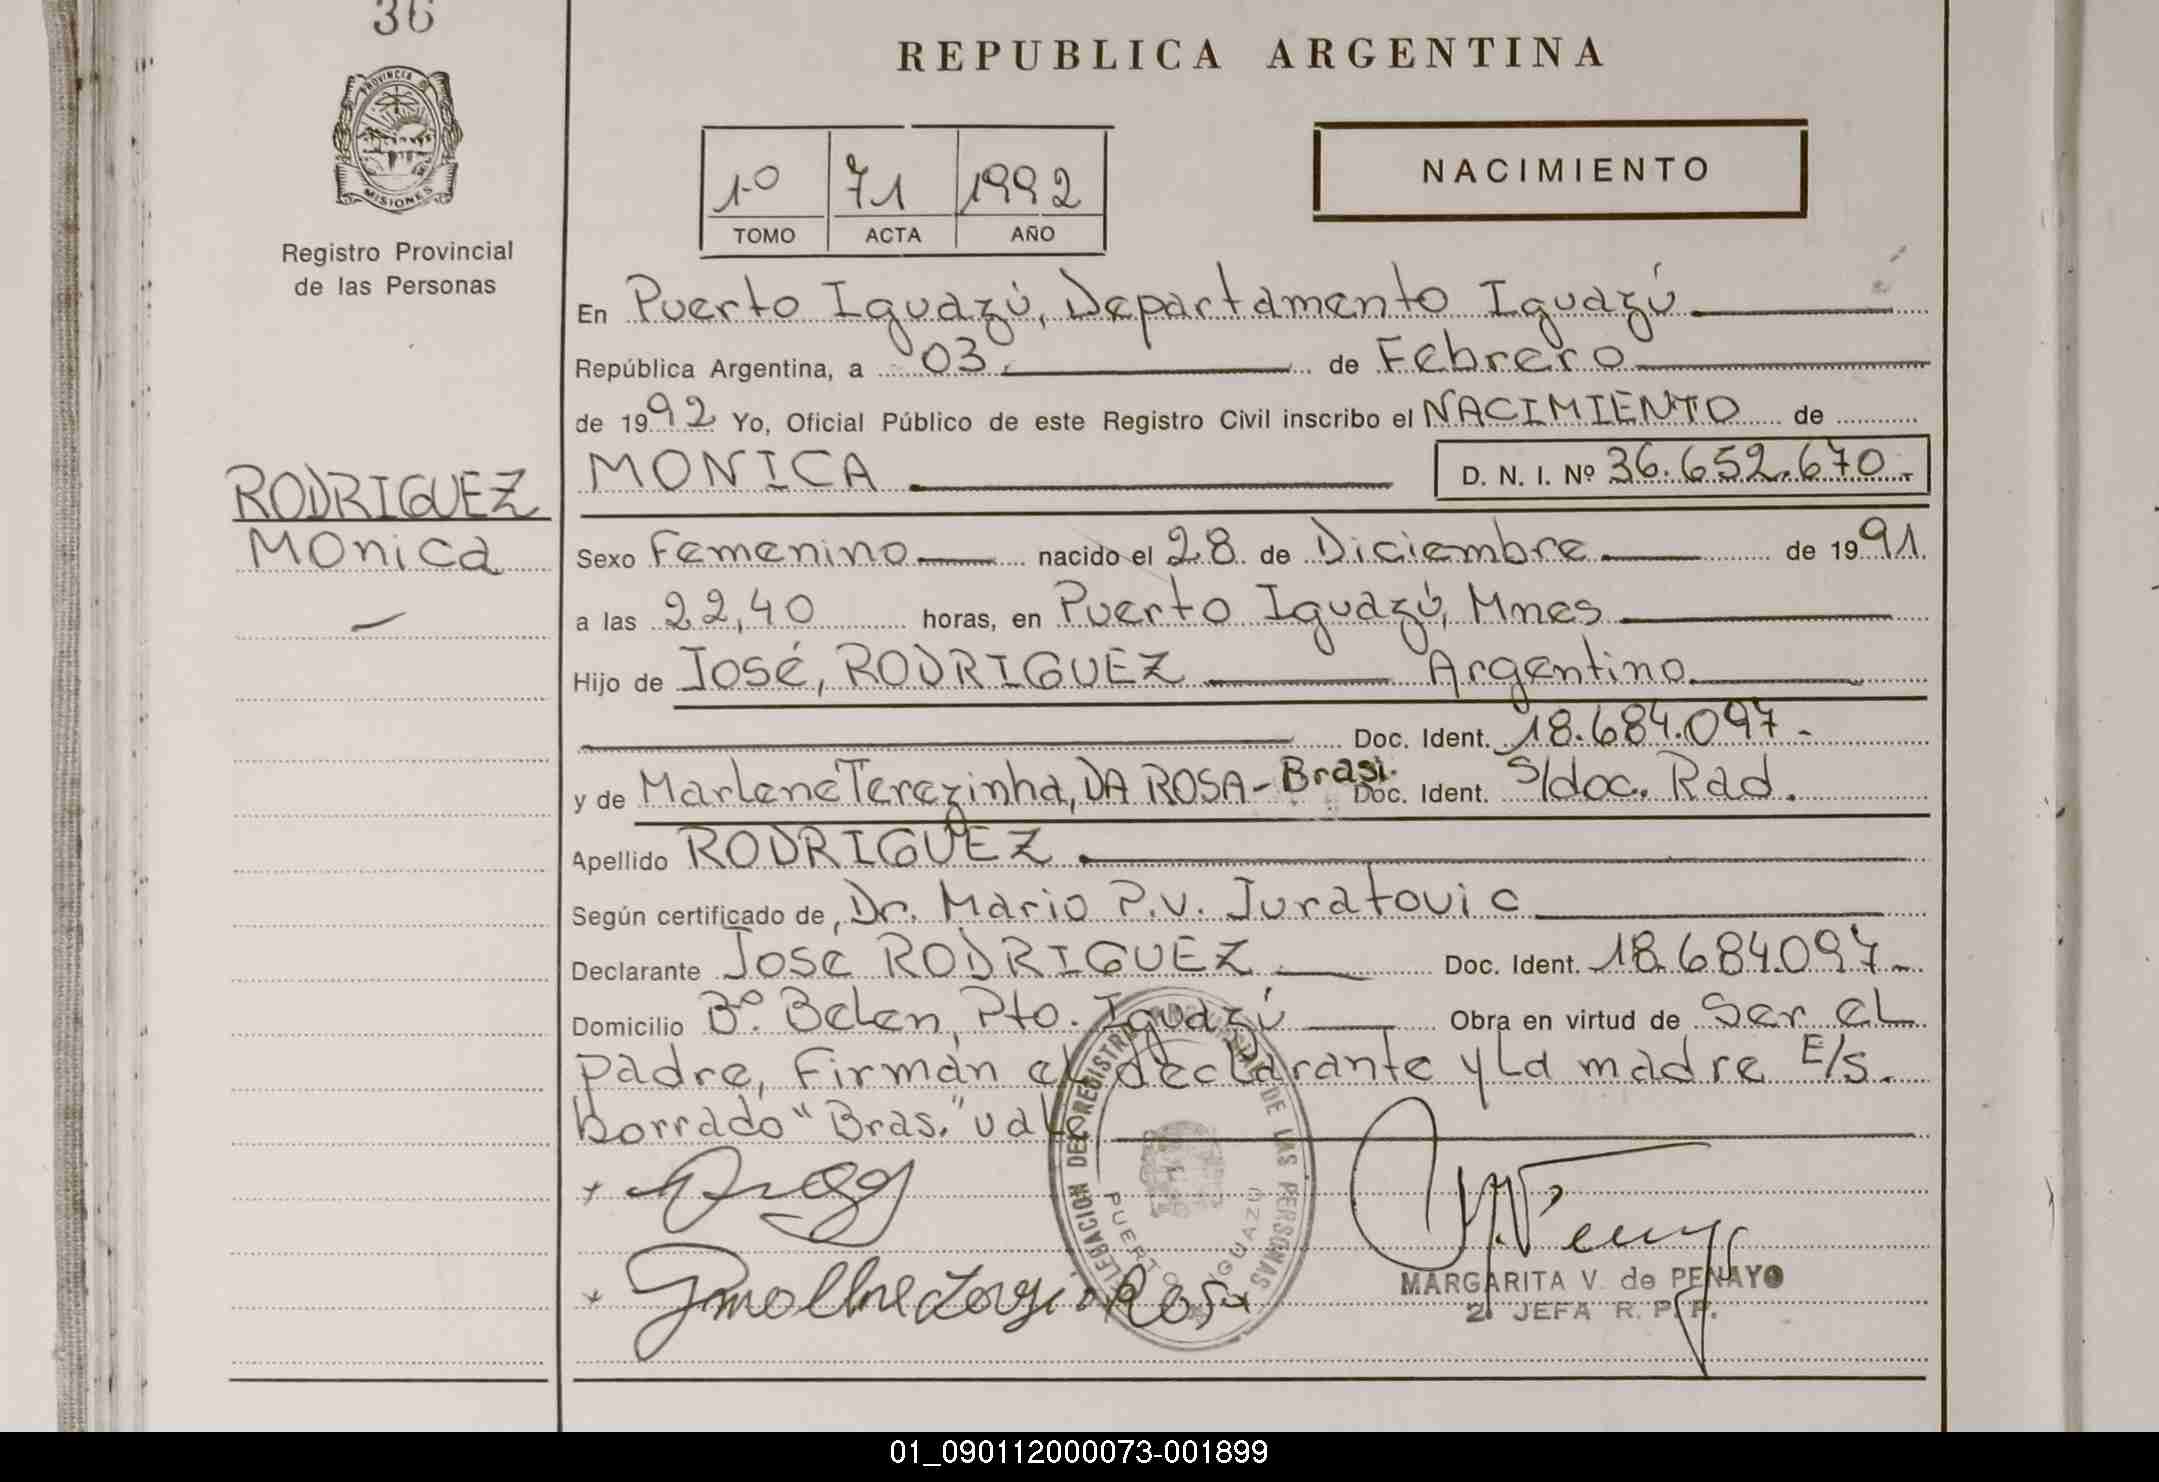 36
REPUBLICA ARGENTINA
PROVINCIA DE
MISIONES
Registro Provincial
de las Personas
1º 71 1992
TOMO ACTA AÑO
NACIMIENTO
En Puerto Iguazú, Departamento Iguazú
República Argentina, a 03 de Febrero
de 1992 Yo, Oficial Público de este Registro Civil inscribo el NACIMIENTO de
RODRIGUEZ
Monica
MONICA D. N. I. Nº 36.652.670.-
Sexo Femenino nacido el 28 de Diciembre de 1991.
a las 22,40 horas, en Puerto Iguazú, Mnes
Hijo de José, RODRIGUEZ Argentino
Doc. Ident. 18.684.097.-
y de Marlene Terezinha, DA ROSA - Brasi. Doc. Ident. S/doc. Rad.
Apellido RODRIGUEZ
Según certificado de, Dr. Mario P.V. Juratovic
Declarante José RODRIGUEZ Doc. Ident. 18.684.097.-
Domicilio Bº. Belen, Pto. Iguazú Obra en virtud de Ser el
padre, Firman el declarante y La madre E/s.
borrado "Bras." vale
DELEGACION DEL REGISTRO PROVINCIAL DE LAS PERSONAS
PUERTO IGUAZU
Rosa
MARGARITA V. de PENAYO
2ª JEFA R. P. P.
01_090112000073-001899